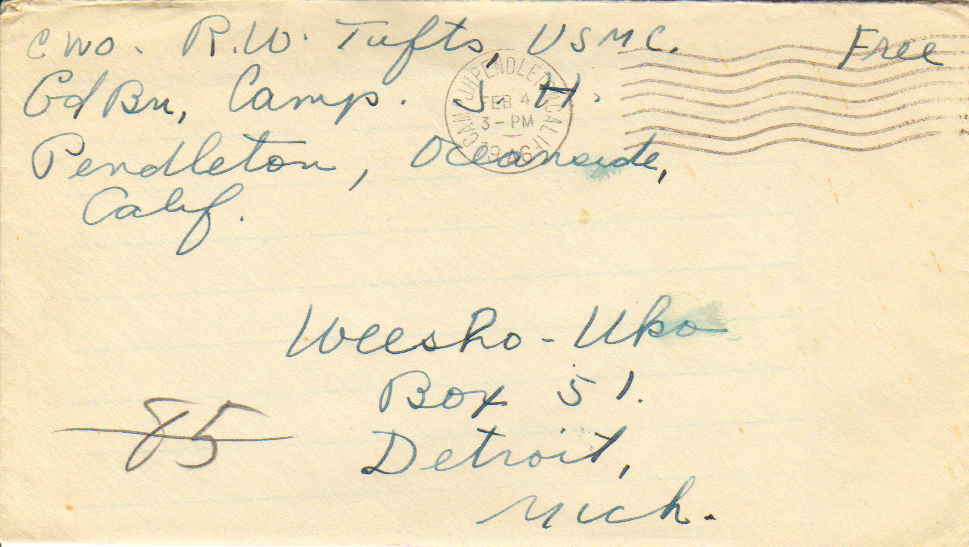 CWO. R.W. Tufts, USMC.
Free
Gd Bn, Camp. J. H.
Pendleton, Oceanside,
Calif.
CAMP J.H. PENDLETON CALIF.
FEB 4
3 - PM
1946
Weesho-Uko
Box 51.
Detroit,
Mich.
85